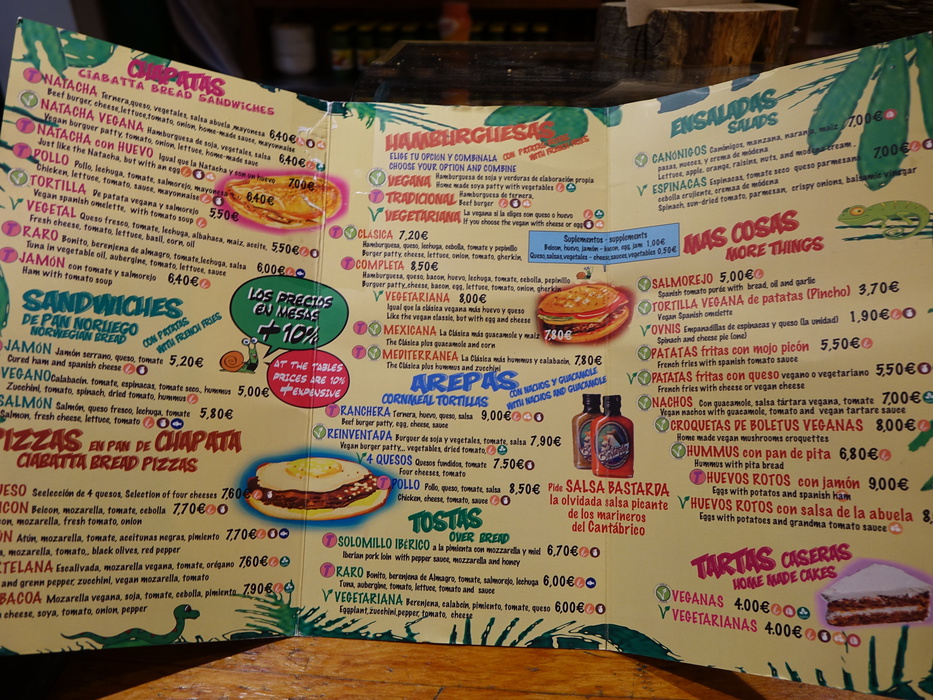 CHAPATAS
CIABATTA BREAD SANDWICHES
NATACHA Ternera,queso, vegetales, salsa abuela,mayonesa
Beef burger, cheese,lettuce,tomato, onion, home-made sauce, mayonnaise 6,40€
NATACHA VEGANA Hamburguesa de soja, vegetales, salsa
Vegan burger patty, tomato, onion, lettuce, home-made sauce 6,40€
NATACHA con HUEVO Igual que la Natacha y con un huevo
Just like the Natacha, but with an egg 7,00€
POLLO Pollo, queso, tomate, salmorejo, mayonesa
Chicken, lettuce, tomato, sauce, mayonnaise 6,40€
TORTILLA De patata vegana y salmorejo
Vegan spanish omelette, with tomato soup 5,50€
VEGETAL Queso fresco, tomate, lechuga, albahaca, maiz, aceite,
Fresh cheese, tomato, lettuce, basil, corn, oil 5,50€
RARO Bonito, berenjena de almagro, tomate,lechuga, salsa
Tuna in vegetable oil, aubergine, tomato, lettuce, sauce 6,00€
JAMÓN con tomate y salmorejo
Ham with tomato soup 6,40€
SANDWICHES
DE PAN NORUEGO
NORWEGIAN BREAD
CON PATATAS
WITH FRENCH FRIES
JAMÓN Jamón serrano, queso, tomate
Cured ham and spanish cheese 5,20€
VEGANO Calabacín, tomate, espinacas, tomate seco, hummus
Zucchini, tomato, spinach, dried tomato, hummus 5,00€
SALMÓN Salmón, queso fresco, lechuga, tomate
Salmon, fresh cheese, lettuce, tomato 5,80€
LOS PRECIOS
EN MESAS
+10%
AT THE TABLES
PRICES ARE 10%
+EXPENSIVE
PIZZAS EN PAN DE CHAPATA
CIABATTA BREAD PIZZAS
UESO Seelección de 4 quesos, Selection of four cheeses 7,60€
ICON Beicon, mozarela, tomate, cebolla 7,70€
con, mozzarella, fresh tomato, onion
ÚN Atún, mozzarella, tomate, aceitunas negras, pimiento 7,70€
a, mozzarella, tomato,, black olives, red pepper
RTELANA Escalivada, mozarella vegana, tomate, orégano 7,60€
and grenn pepper, zucchini, vegan mozarella, tomato
BACOA Mozarella vegana, soja, tomate, cebolla, pimiento 7,90€
cheese, soya, tomato, onion, pepper
HAMBURGUESAS
ELIGE TU OPCION Y COMBINALA
CHOOSE YOUR OPTION AND COMBINE
CON PATATAS
WITH FRENCH FRIES
VEGANA Hamburguesa de soja y verduras de elaboración propia
Home made soya patty with vegetables
TRADICIONAL Hamburguesa de ternera,
Beef burger
VEGETARIANA La vegana si la eliges con queso o huevo
If you choose the vegan with cheese or egg
CLASICA 7,20€
Hamburguesa, queso, lechuga, cebolla, tomate y pepinillo
Burger patty, cheese, lettuce, onion, tomato, gherkin
COMPLETA 8,50€
Hamburguesa, queso, bacon, huevo, lechuga, tomate, cebolla, pepinillo
Burger patty,cheese, bacon, egg, lettuce, tomato, onion, gherkin
VEGETARIANA 8,00€
Igual que la clásica vegana más huevo y queso
Like the vegan classic, but with egg and cheese
MEXICANA La Clásica más guacamole y maiz 7,80€
The Clásica plus guacamole and corn
MEDITERRANEA La Clásica más hummus y calabacín, 7,80€
The Clásica plus hummus and zucchini
Suplementos - supplements
Beicon, huevo, jamón - bacon, egg, jam 1,00€
Queso,salsas,vegetales - cheese,sauces,vegetables 0,50€
AREPAS
CORNMEAL TORTILLAS
CON NACHOS Y GUACAMOLE
WITH NACHOS AND GUACAMOLE
RANCHERA Ternera, huevo, queso, salsa 9,00€
Beef burger patty, egg, cheese, sauce
REINVENTADA Burguer de soja y vegetales, tomate, salsa 7,90€
Vegan burger patty... vegetables, dried tomato,
4 QUESOS Quesos fundidos, tomate 7.50€
Four cheeses, tomato
POLLO Pollo, queso, tomate, salsa 8,50€
Chicken, cheese, tomato, sauce
TOSTAS
OVER BREAD
SOLOMILLO IBERICO a la pimienta con mozzarella y miel 6,70€
Iberian pork loin with pepper sauce, mozzarella and honey
RARO Bonito, berenjena de Almagro, tomate, salmorejo, lechuga 6,00€
Tuna, aubergine, tomato, lettuce, tomato and sauce
VEGETARIANA Berenjena, calabcín, pimiento, tomate, queso 6,00€
Eggplant,zucchini,pepper, tomato, cheese
Pide SALSA BASTARDA
la olvidada salsa picante
de los marineros
del Cantábrico
ENSALADAS
SALADS
CANONIGOS Canónigos, manzana, naranja, maiz 7,00€
pasas, nueces, y crema de módena
Lettuce, apple, orange, raisins, nuts, and modena cream,
ESPINACAS Espinacas, tomate seco queso parmesano 7,00€
cebolla crujiente, cremaa de módena
Spinach, sun-dried tomato, parmesan, crispy onions, balsamic vinegar
MAS COSAS
MORE THINGS
SALMOREJO 5,00€
Spanish tomato purée with bread, oil and garlic
TORTILLA VEGANA de patatas (Pincho) 3,70€
Vegan Spanish omelette
OVNIS Empanadillas de espinacas y queso (la unidad) 1,90€
Spinach and cheese pie (one)
PATATAS fritas con mojo picón 5,50€
French fries with spanish tomato sauce
PATATAS fritas con queso vegano o vegetariano 5,50€
French fries with cheese or vegan cheese
NACHOS Con guacamole, salsa tártara vegana, tomate 7,00€
Vegan nachos with guacamole, tomato and vegan tartare sauce
CROQUETAS DE BOLETUS VEGANAS 8,00€
Home made vegan mushrooms croquettes
HUMMUS con pan de pita 6,80€
Hummus with pita bread
HUEVOS ROTOS con jamón 9,00€
Eggs with potatoes and spanish ham
HUEVOS ROTOS con salsa de la abuela 8,
Eggs with potatoes and grandma tomato sauce
TARTAS CASERAS
HOME MADE CAKES
VEGANAS 4.00€
VEGETARIANAS 4.00€